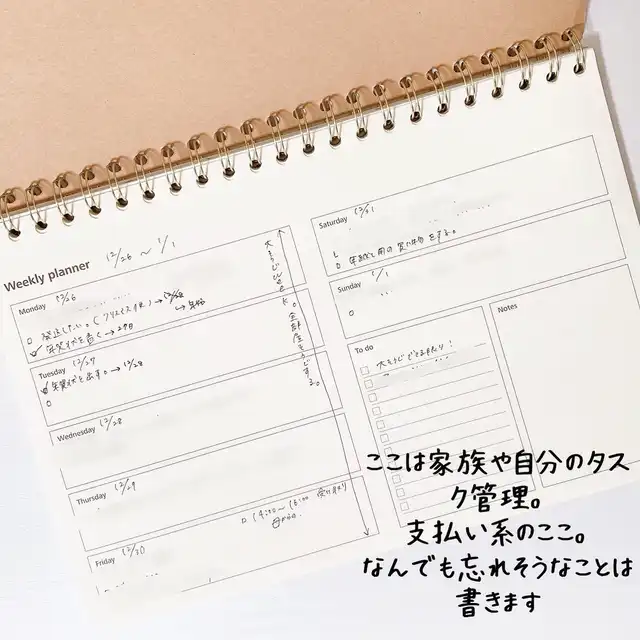 Weekly planner 12/26 ~ 1/1
Monday 12/26
発送したい。(クリスマス休) → 12/28
年賀状を書く → 29日
Tuesday 12/27
年賀状を出す。→ 12/28
Wednesday 12/28
Thursday 12/29
14:00~16:00 受け取り
Friday 12/30
大そうじ
全部屋そうじする。
Saturday 12/31
年越し用の買い物をする。
Sunday 1/1
To do
Notes
ここは家族や自分のタス
ク管理。
支払い系のここ。
なんでも忘れそうなことは
書きます